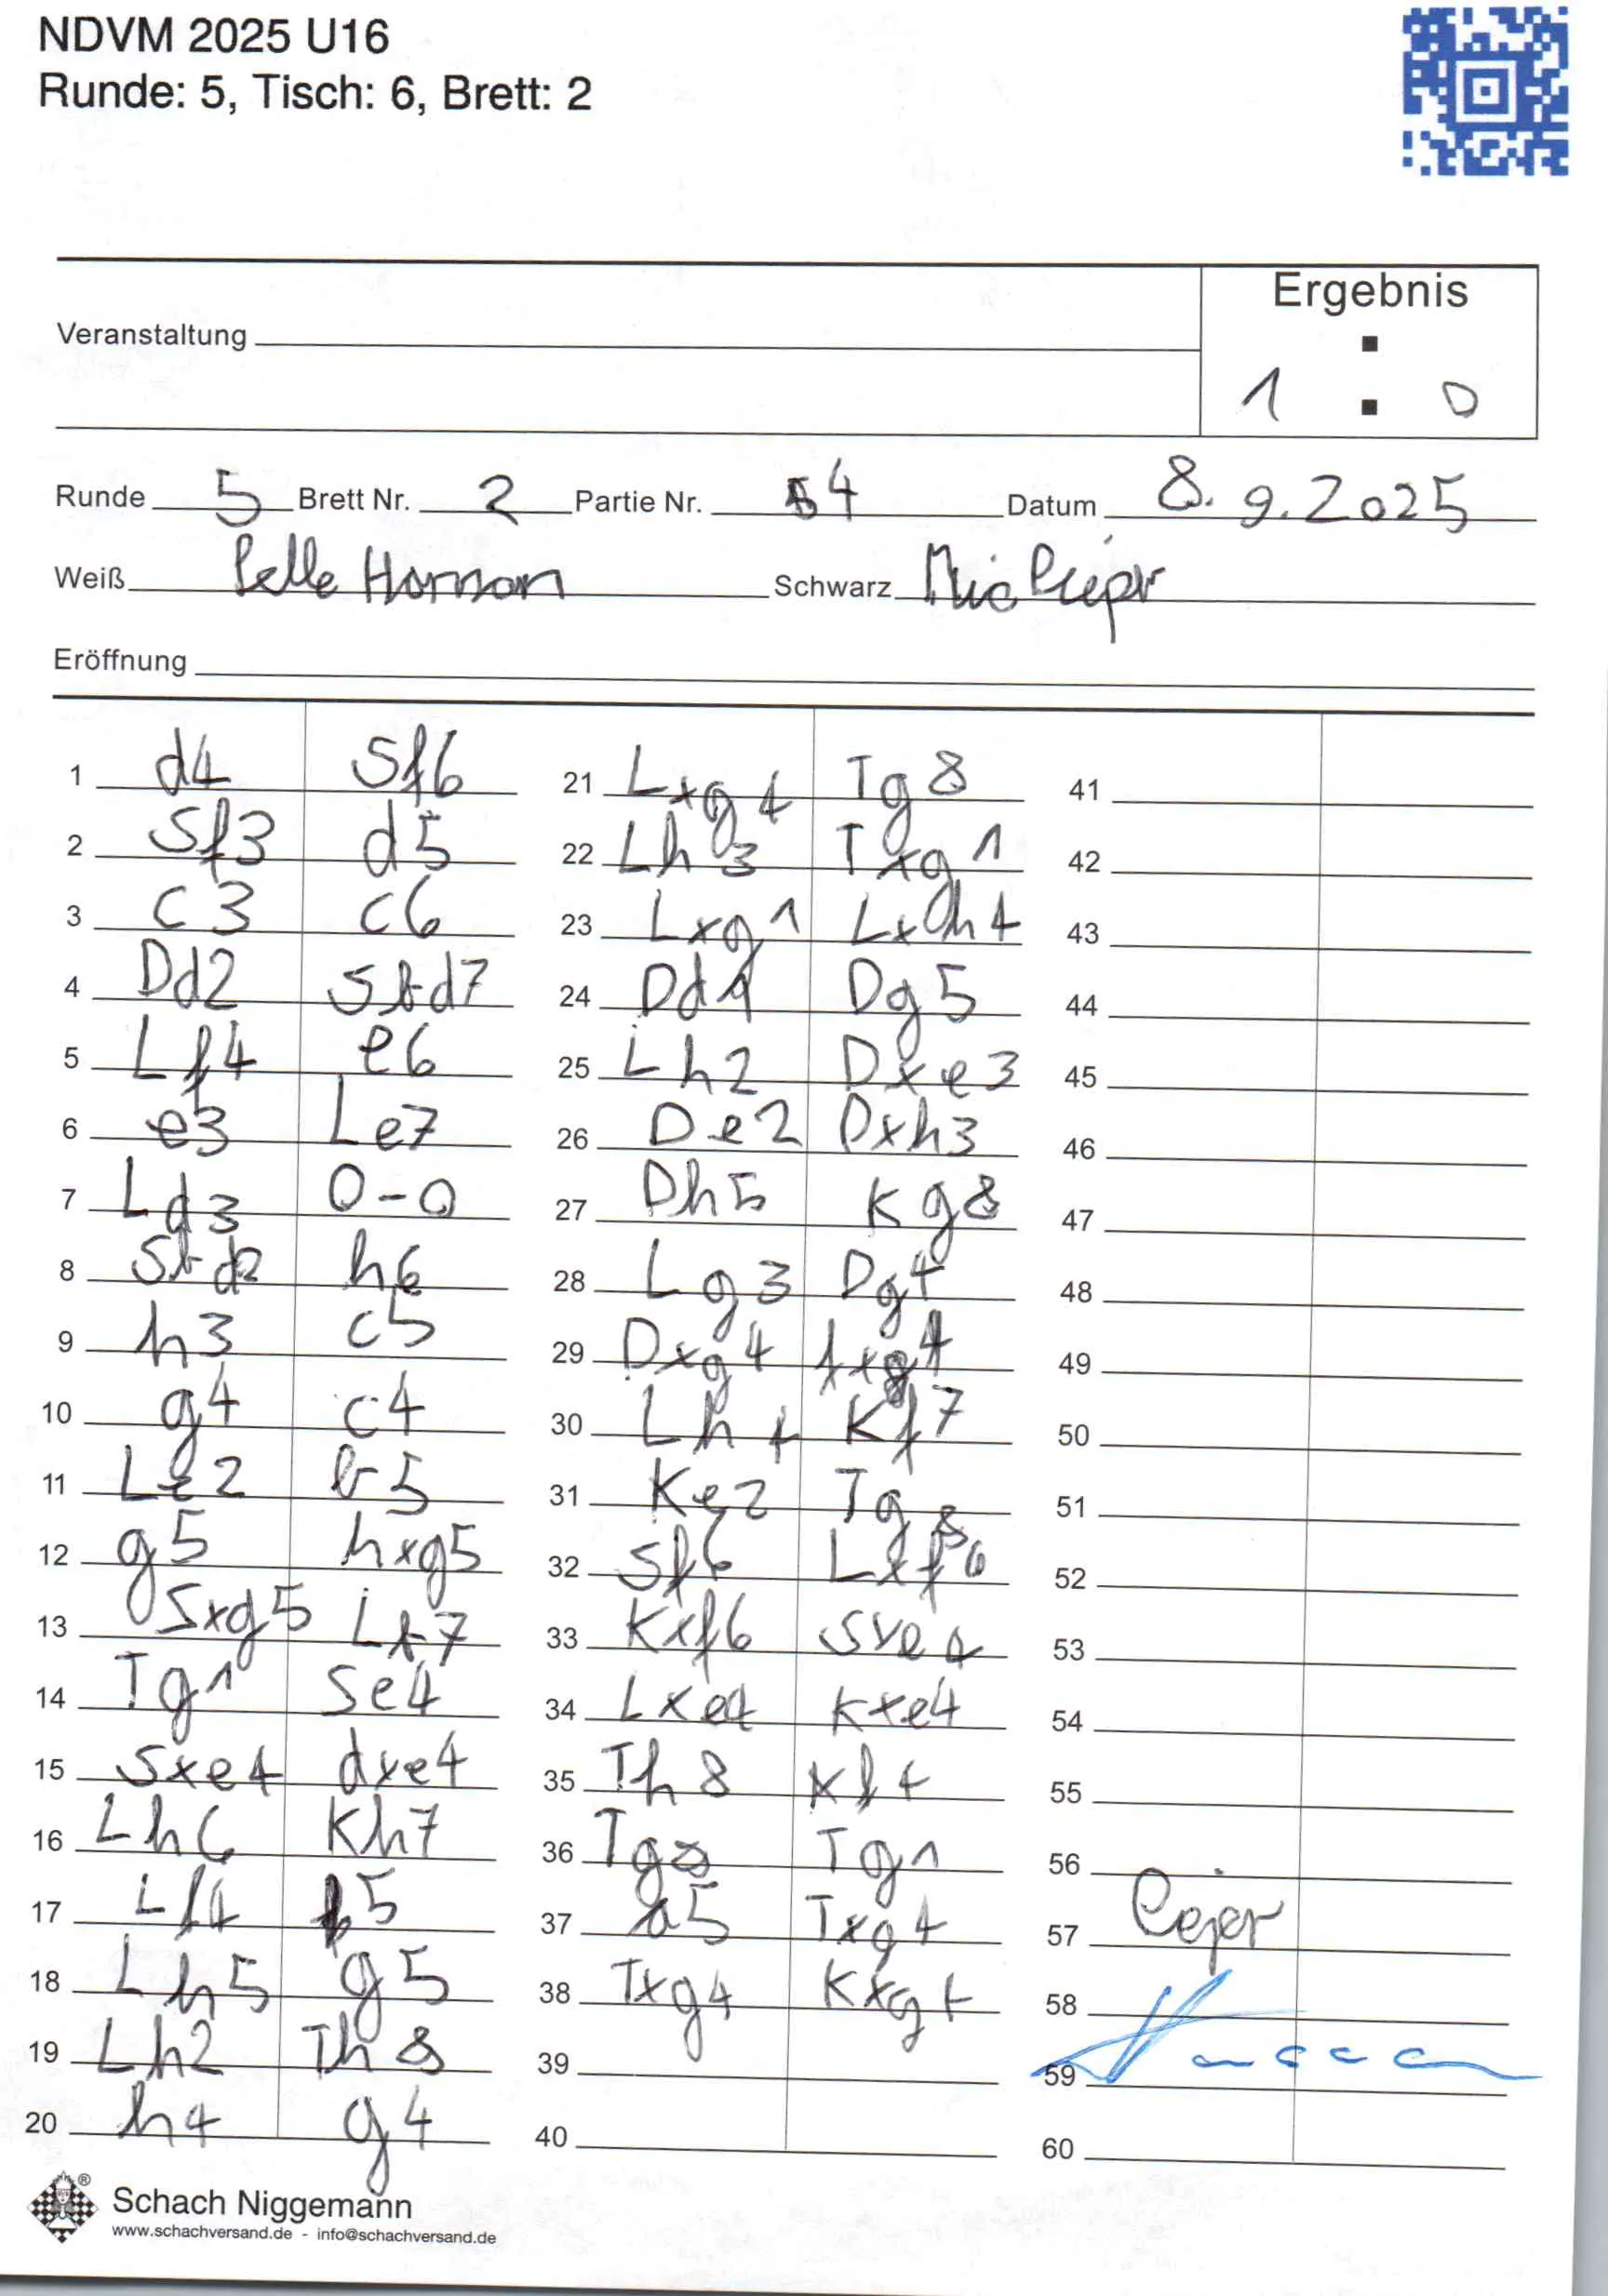 NDVM 2025 U16
Runde: 5, Tisch: 6, Brett: 2
Ergebnis
Veranstaltung
1 : 0
Runde 5 Brett Nr. 2 Partie Nr. 54 Datum 8.9.2025
Weiß Pelle Schwarz
Eröffnung
1 d4 Sf6
2 Sf3 d5
3 c3 c6
4 Dd2 Sbd7
5 Lf4 e6
6 e3 Le7
7 Ld3 0-0
8 Sbd2 h6
9 h3 c5
10 g4 c4
11 Le2 b5
12 g5 hxg5
13 Sxg5 Lb7
14 Tg1 Se4
15 Sxe4 dxe4
16 Lh6 Kh7
17 Lf4 f5
18 Lh5 g5
19 Lh2 Th8
20 h4 g4
21 Lxg4 Tg8
22 Lh3 Txg1
23 Lxg1 Lxh4
24 Dd1 Dg5
25 Lh2 Dxe3
26 De2 Dxh3
27 Dh5 Kg8
28 Lg3 Dg4
29 Dxg4 fxg4
30 Lh4 Kf7
31 Ke2 Tg8
32 Sf6 Lxf6
33 Kxf6 Sxe4
34 Lxe4 Kxe4
35 Th8 Kf4
36 Tg8 Tg1
37 a5 Txg4
38 Txg4 Kxg4
39
40
41
42
43
44
45
46
47
48
49
50
51
52
53
54
55
56
57
58
59
60
Schach Niggemann
www.schachversand.de - info@schachversand.de